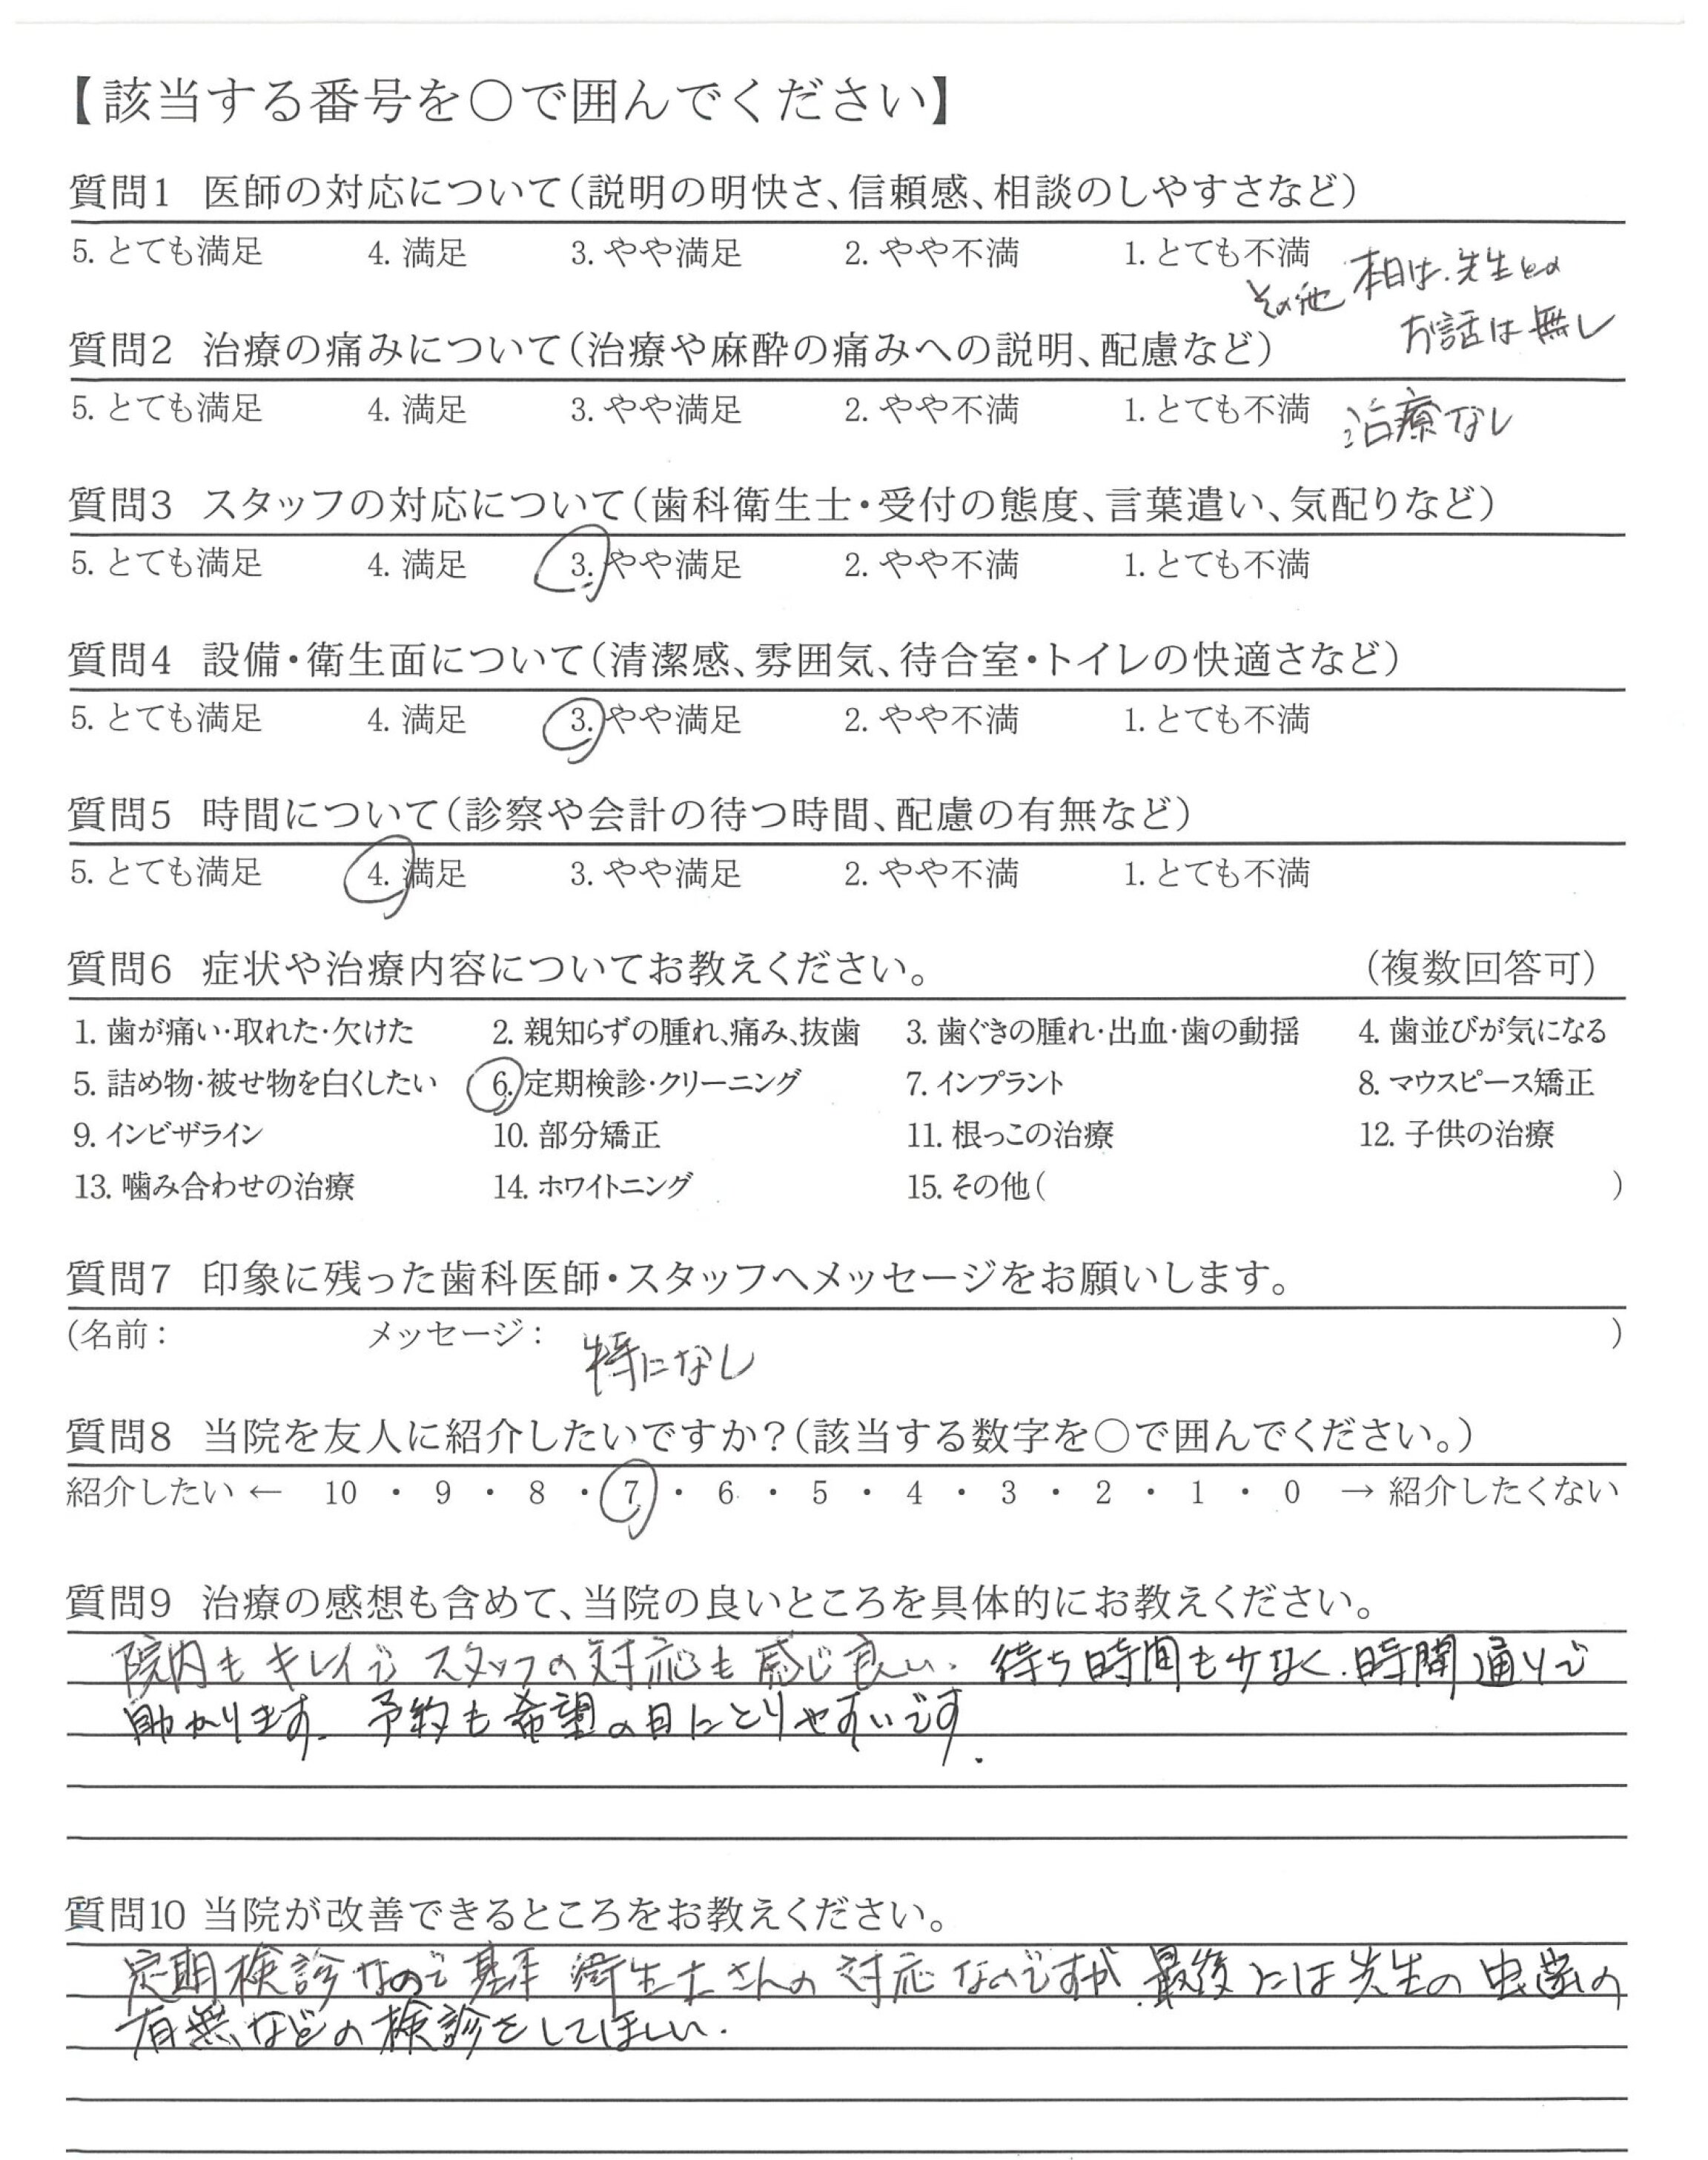 【該当する番号を○で囲んでください】
質問1 医師の対応について(説明の明快さ、信頼感、相談のしやすさなど)
5. とても満足 4. 満足 3. やや満足 2. やや不満 1. とても不満
その他 本日は、先生との
お話は無し
質問2 治療の痛みについて(治療や麻酔の痛みへの説明、配慮など)
5. とても満足 4. 満足 3. やや満足 2. やや不満 1. とても不満 治療なし
質問3 スタッフの対応について(歯科衛生士・受付の態度、言葉遣い、気配りなど)
5. とても満足 4. 満足 3. やや満足 2. やや不満 1. とても不満
質問4 設備・衛生面について(清潔感、雰囲気、待合室・トイレの快適さなど)
5. とても満足 4. 満足 3. やや満足 2. やや不満 1. とても不満
質問5 時間について(診察や会計の待つ時間、配慮の有無など)
5. とても満足 4. 満足 3. やや満足 2. やや不満 1. とても不満
質問6 症状や治療内容についてお教えください。 (複数回答可)
1. 歯が痛い・取れた・欠けた 2. 親知らずの腫れ、痛み、抜歯 3. 歯ぐきの腫れ・出血・歯の動揺 4. 歯並びが気になる
5. 詰め物・被せ物を白くしたい 6. 定期検診・クリーニング 7. インプラント 8. マウスピース矯正
9. インビザライン 10. 部分矯正 11. 根っこの治療 12. 子供の治療
13. 噛み合わせの治療 14. ホワイトニング 15. その他( )
質問7 印象に残った歯科医師・スタッフへメッセージをお願いします。
(名前: メッセージ: 特になし )
質問8 当院を友人に紹介したいですか?(該当する数字を○で囲んでください。)
紹介したい ← 10 ・ 9 ・ 8 ・ 7 ・ 6 ・ 5 ・ 4 ・ 3 ・ 2 ・ 1 ・ 0 → 紹介したくない
質問9 治療の感想も含めて、当院の良いところを具体的にお教えください。
院内もキレイで スタッフの対応も感じ良い、待ち時間も少なく、時間通りで
助かります。予約も希望の日にとりやすいです。
質問10 当院が改善できるところをお教えください。
定期検診なので基本 衛生士さんの対応なのですが、最後には先生の虫歯の
有無などの検診をしてほしい。